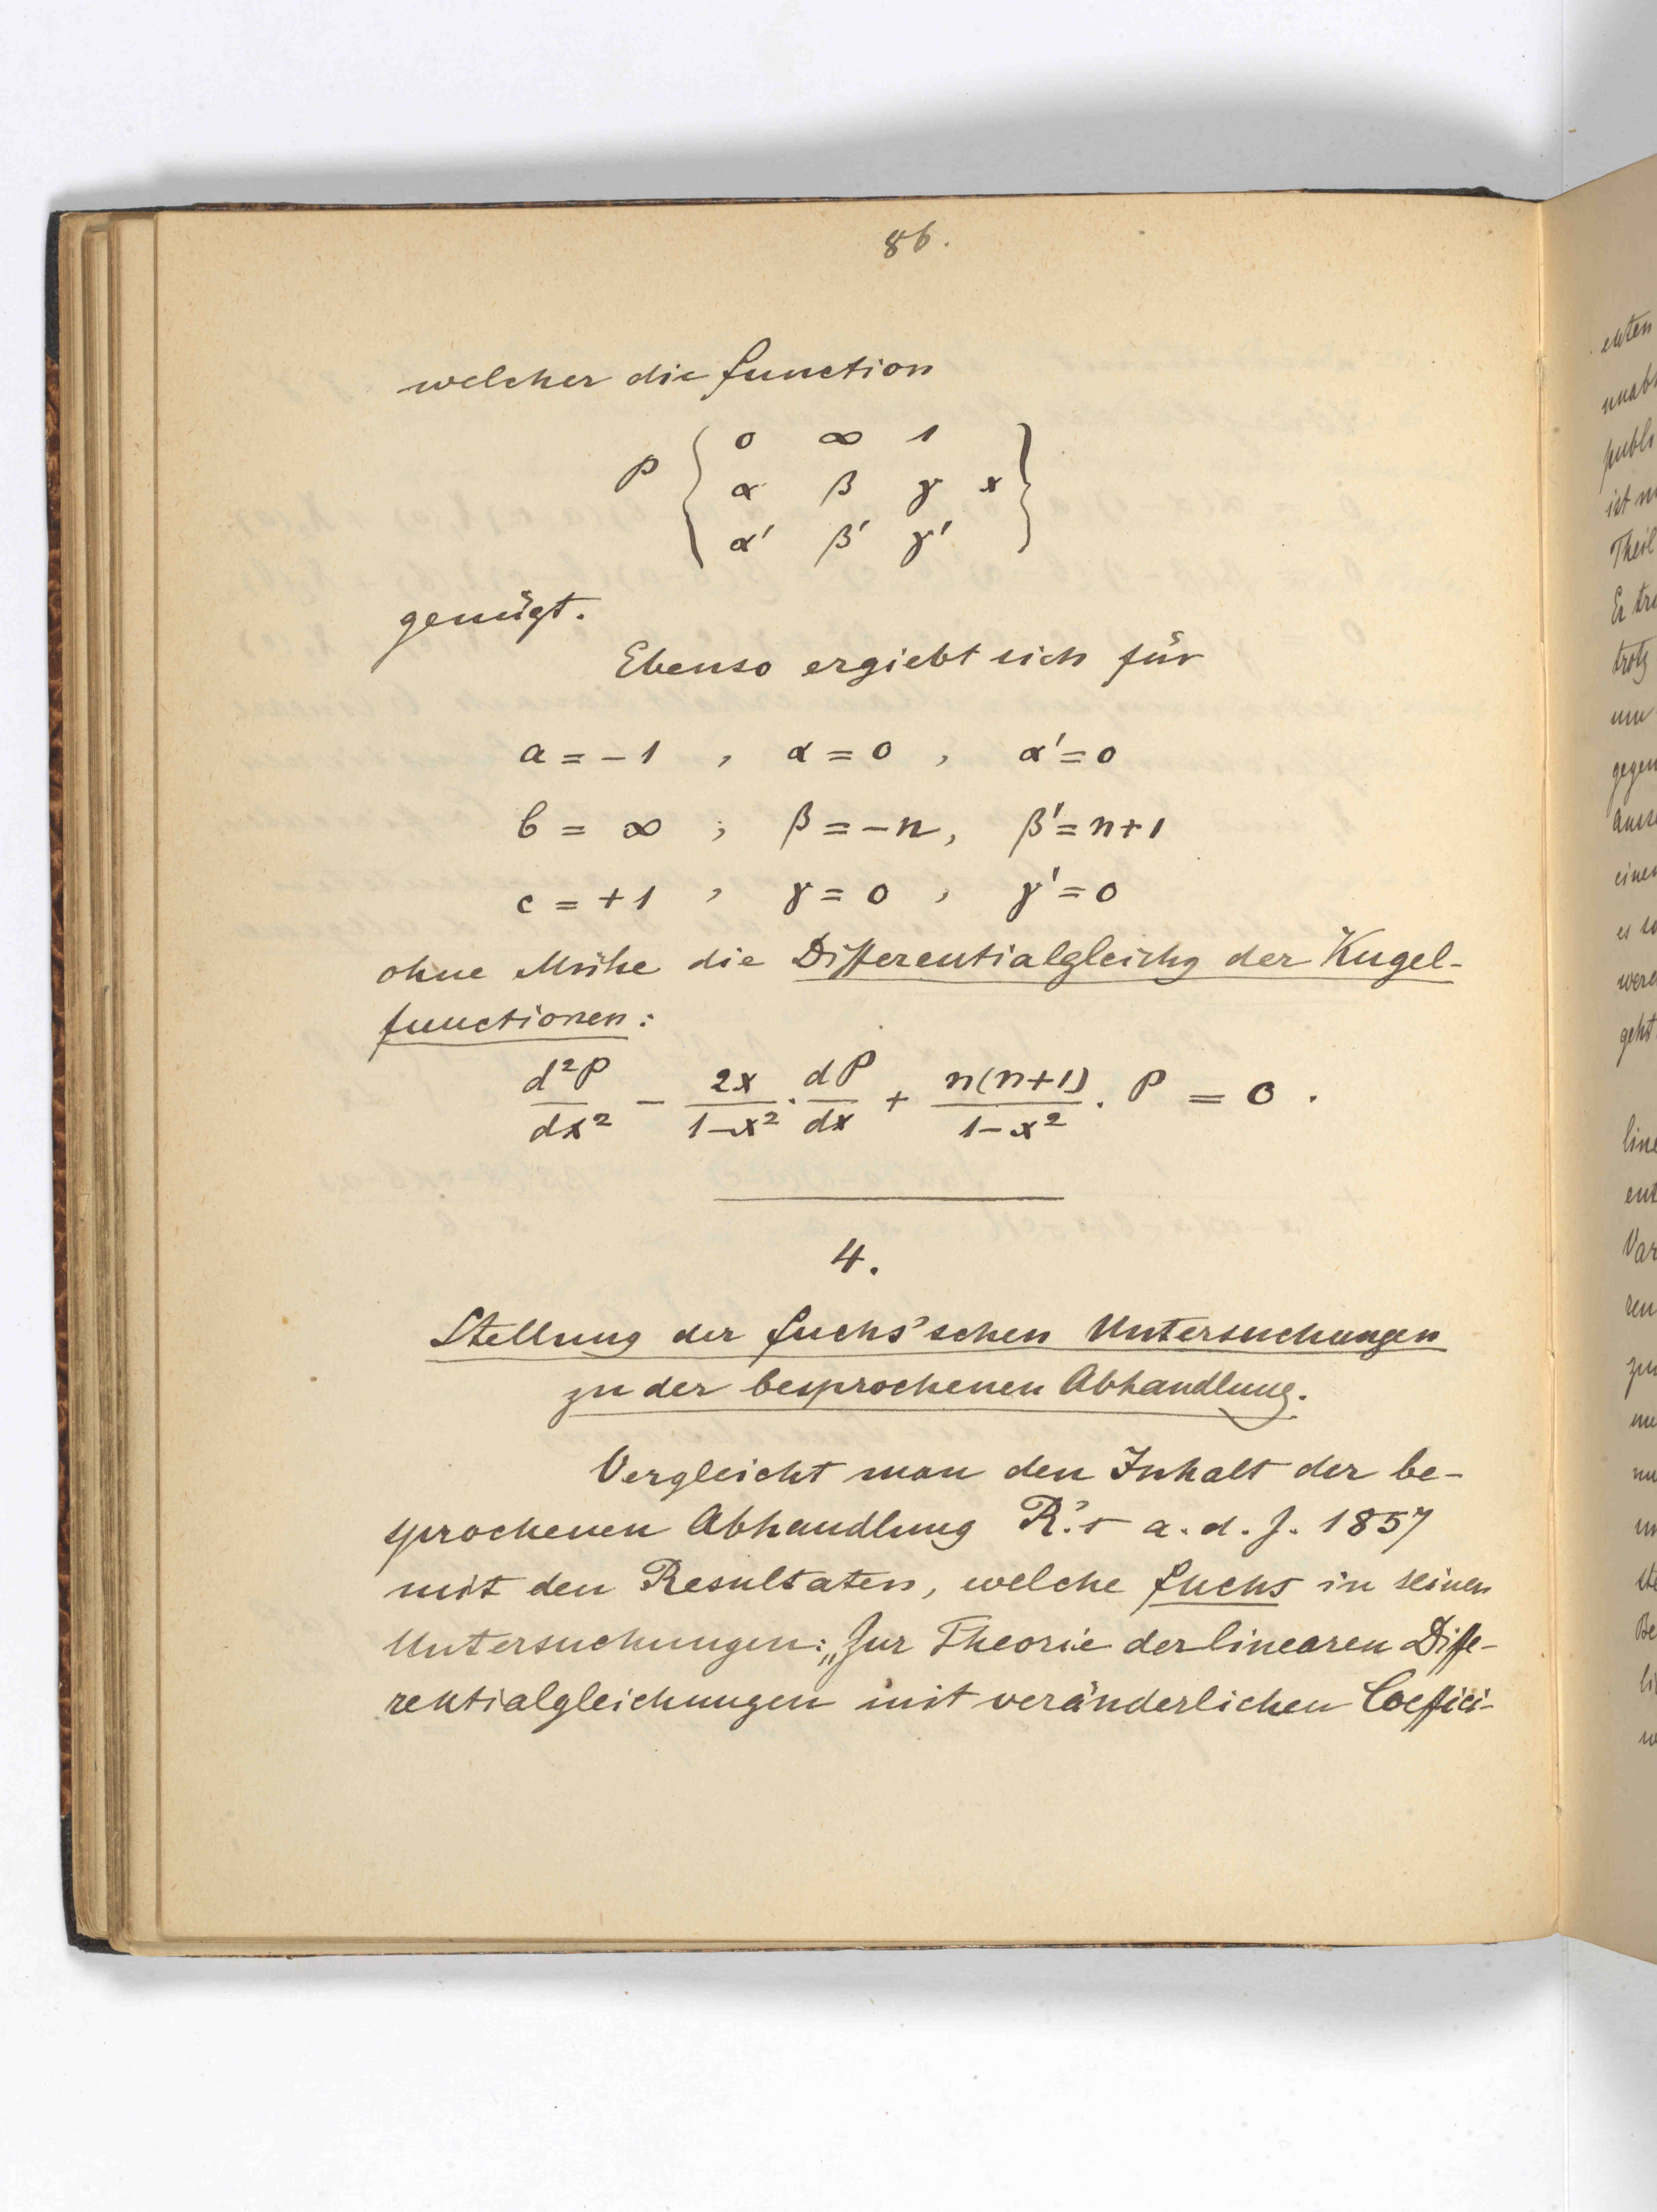 86.
welcher die Function
P { 0 ∞ 1
α β γ x }
α' β' γ'
genügt.
Ebenso ergiebt sich für
a = -1 , α = 0 , α' = 0
b = ∞ , β = -n, β' = n+1
c = +1 , γ = 0 , γ' = 0
ohne Mühe die Differentialgleichg der Kugel-
functionen:
d²P/dx² - 2x/1-x² · dP/dx + n(n+1)/1-x² · P = 0 .
4.
Stellung der Fuchs'schen Untersuchungen
zu der besprochenen Abhandlung.
Vergleicht man den Inhalt der be-
sprochenen Abhandlung R.'s a. d. J. 1857
mit den Resultaten, welche Fuchs in seinen
Untersuchungen: „Zur Theorie der linearen Diffe-
rentialgleichungen mit veränderlichen Coeffici-
enten
publi
Theil
trotz
um
gegen
einer
geht